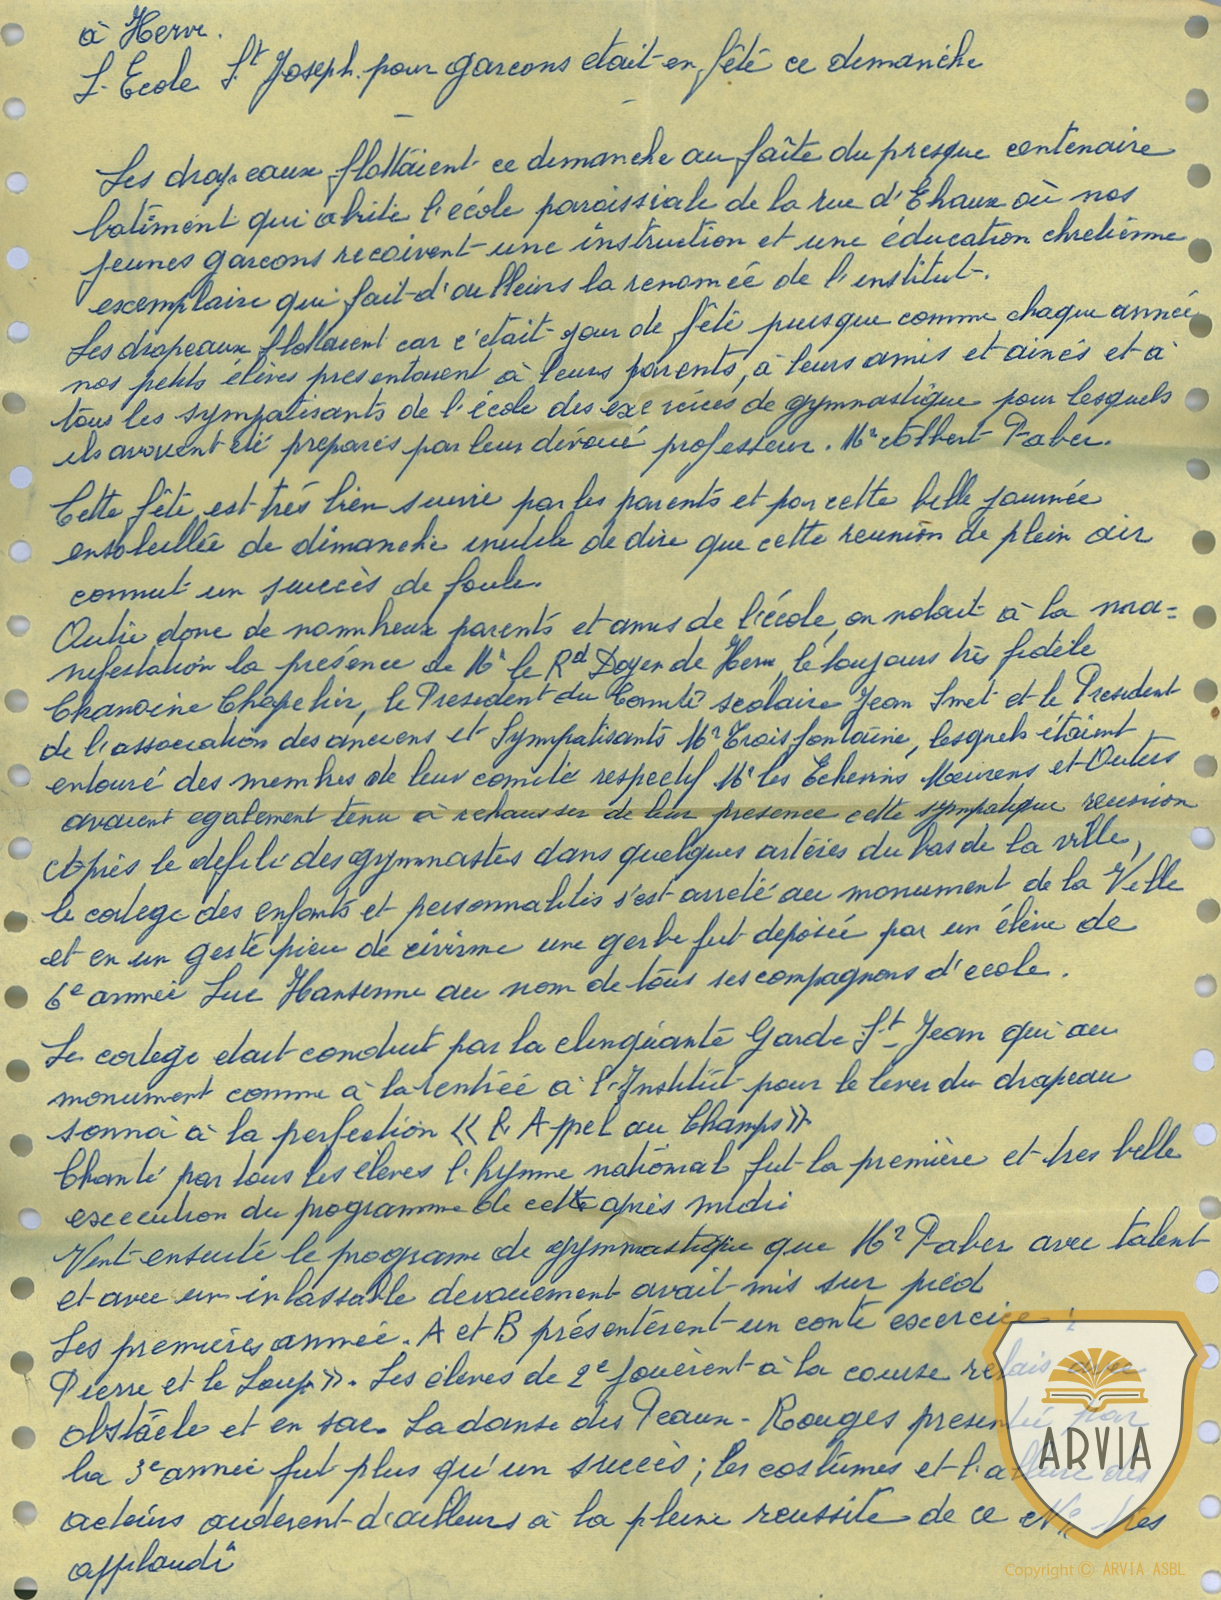 à Herve.
L'Ecole St Joseph pour garcons etait en fêté ce dimanche
Les drapeaux flottaient ce dimanche au faîte du presque centenaire
batiment qui abrite l'école paroissiale de la rue d'Ehaux où nos
jeunes garcons recoivent une instruction et une éducation chretienne
exemplaire qui fait d'ailleurs la renomée de l'institut.
Les drapeaux flottaient car c'etait jour de fêté puisque comme chaque année
nos petits élèves presentaient à leurs parents, à leurs amis et ainés et à
tous les sympatisants de l'école des exercices de gymnastique pour lesquels
ils avaient été preparés par leur dévoué professeur. Mr Albert Faber.
Cette fête est très bien suivie par les parents et par cette belle journée
ensoleillée de dimanche inutile de dire que cette reunion de plein air
connut un succès de foule.
Outre donc de nombreux parents et amis de l'école, on notait à la ma=
nifestation la présence de Mr le Rd Doyen de Herve, le toujours très fidèle
Chanoine Chapelier, le President du Comité scolaire Jean Smet et le President
de l'association des anciens et Sympatisants Mr Troisfontaine, lesquels étaient
entouré des membres de leur comité respectif Mr les Echevins Meurens et Outers
avaient egalement tenu à rehausser de leur presence cette sympatique reunion
Après le defilé des gymnastes dans quelques artères du bas de la ville,
le cortege des enfants et personnalités s'est arreté au monument de la Ville
et en un geste pieu de civisme une gerbe fut deposée par un élève de
6e année Luc Hansenne au nom de tous ses compagnons d'ecole.
Le cortege etait conduit par la clinquante Garde St Jean qui au
monument comme à la rentrée à l'Institut pour le lever du drapeau
sonna à la perfection « l'Appel au Champs »
Chanté par tous les élèves l'hymne national fut la première et tres belle
execution du programme de cette après midi
Vint ensuite le programe de gymnastique que Mr Faber avec talent
et avec un inlassable devouement avait mis sur pied
Les premières année. A et B présentèrent un conte exercice :
Pierre et le Loup ». Les élèves de 2e jouèrent à la course relais avec
obstacle et en sac. La danse des Peaux-Rouges presenté par
la 3e année fut plus qu'un succès ; les costumes et l'allure des
acteurs aiderent d'ailleurs à la pleine reussite de ce tres
applaudi
ARVIA
Copyright © ARVIA ASBL